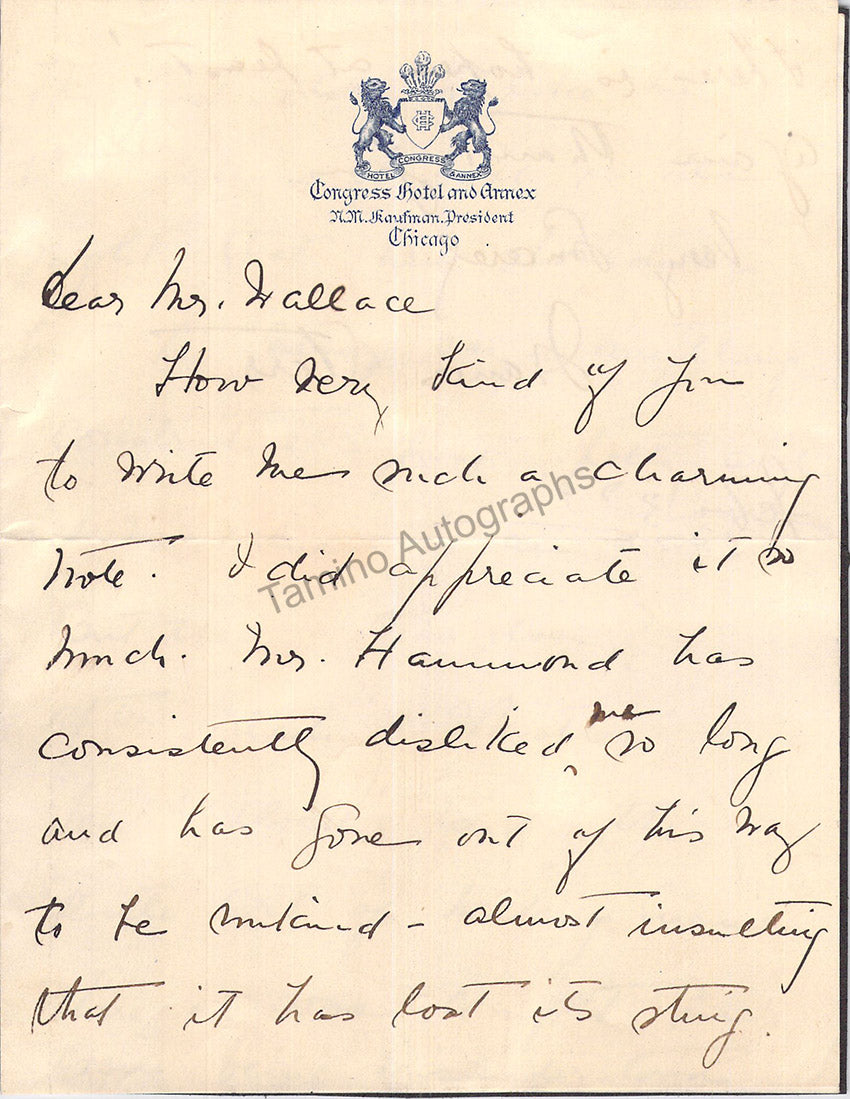 HOTEL CONGRESS & ANNEX
Congress Hotel and Annex
N.M. Kaufman. President
Chicago
Dear Mr. Wallace
How very kind of you
to write me such a charming
note. I did appreciate it so
much. Mr. Hammond has
consistently disliked me so long
and has gone out of his way
to be unkind - almost insulting
that it has lost its sting.
Tamino Autographs